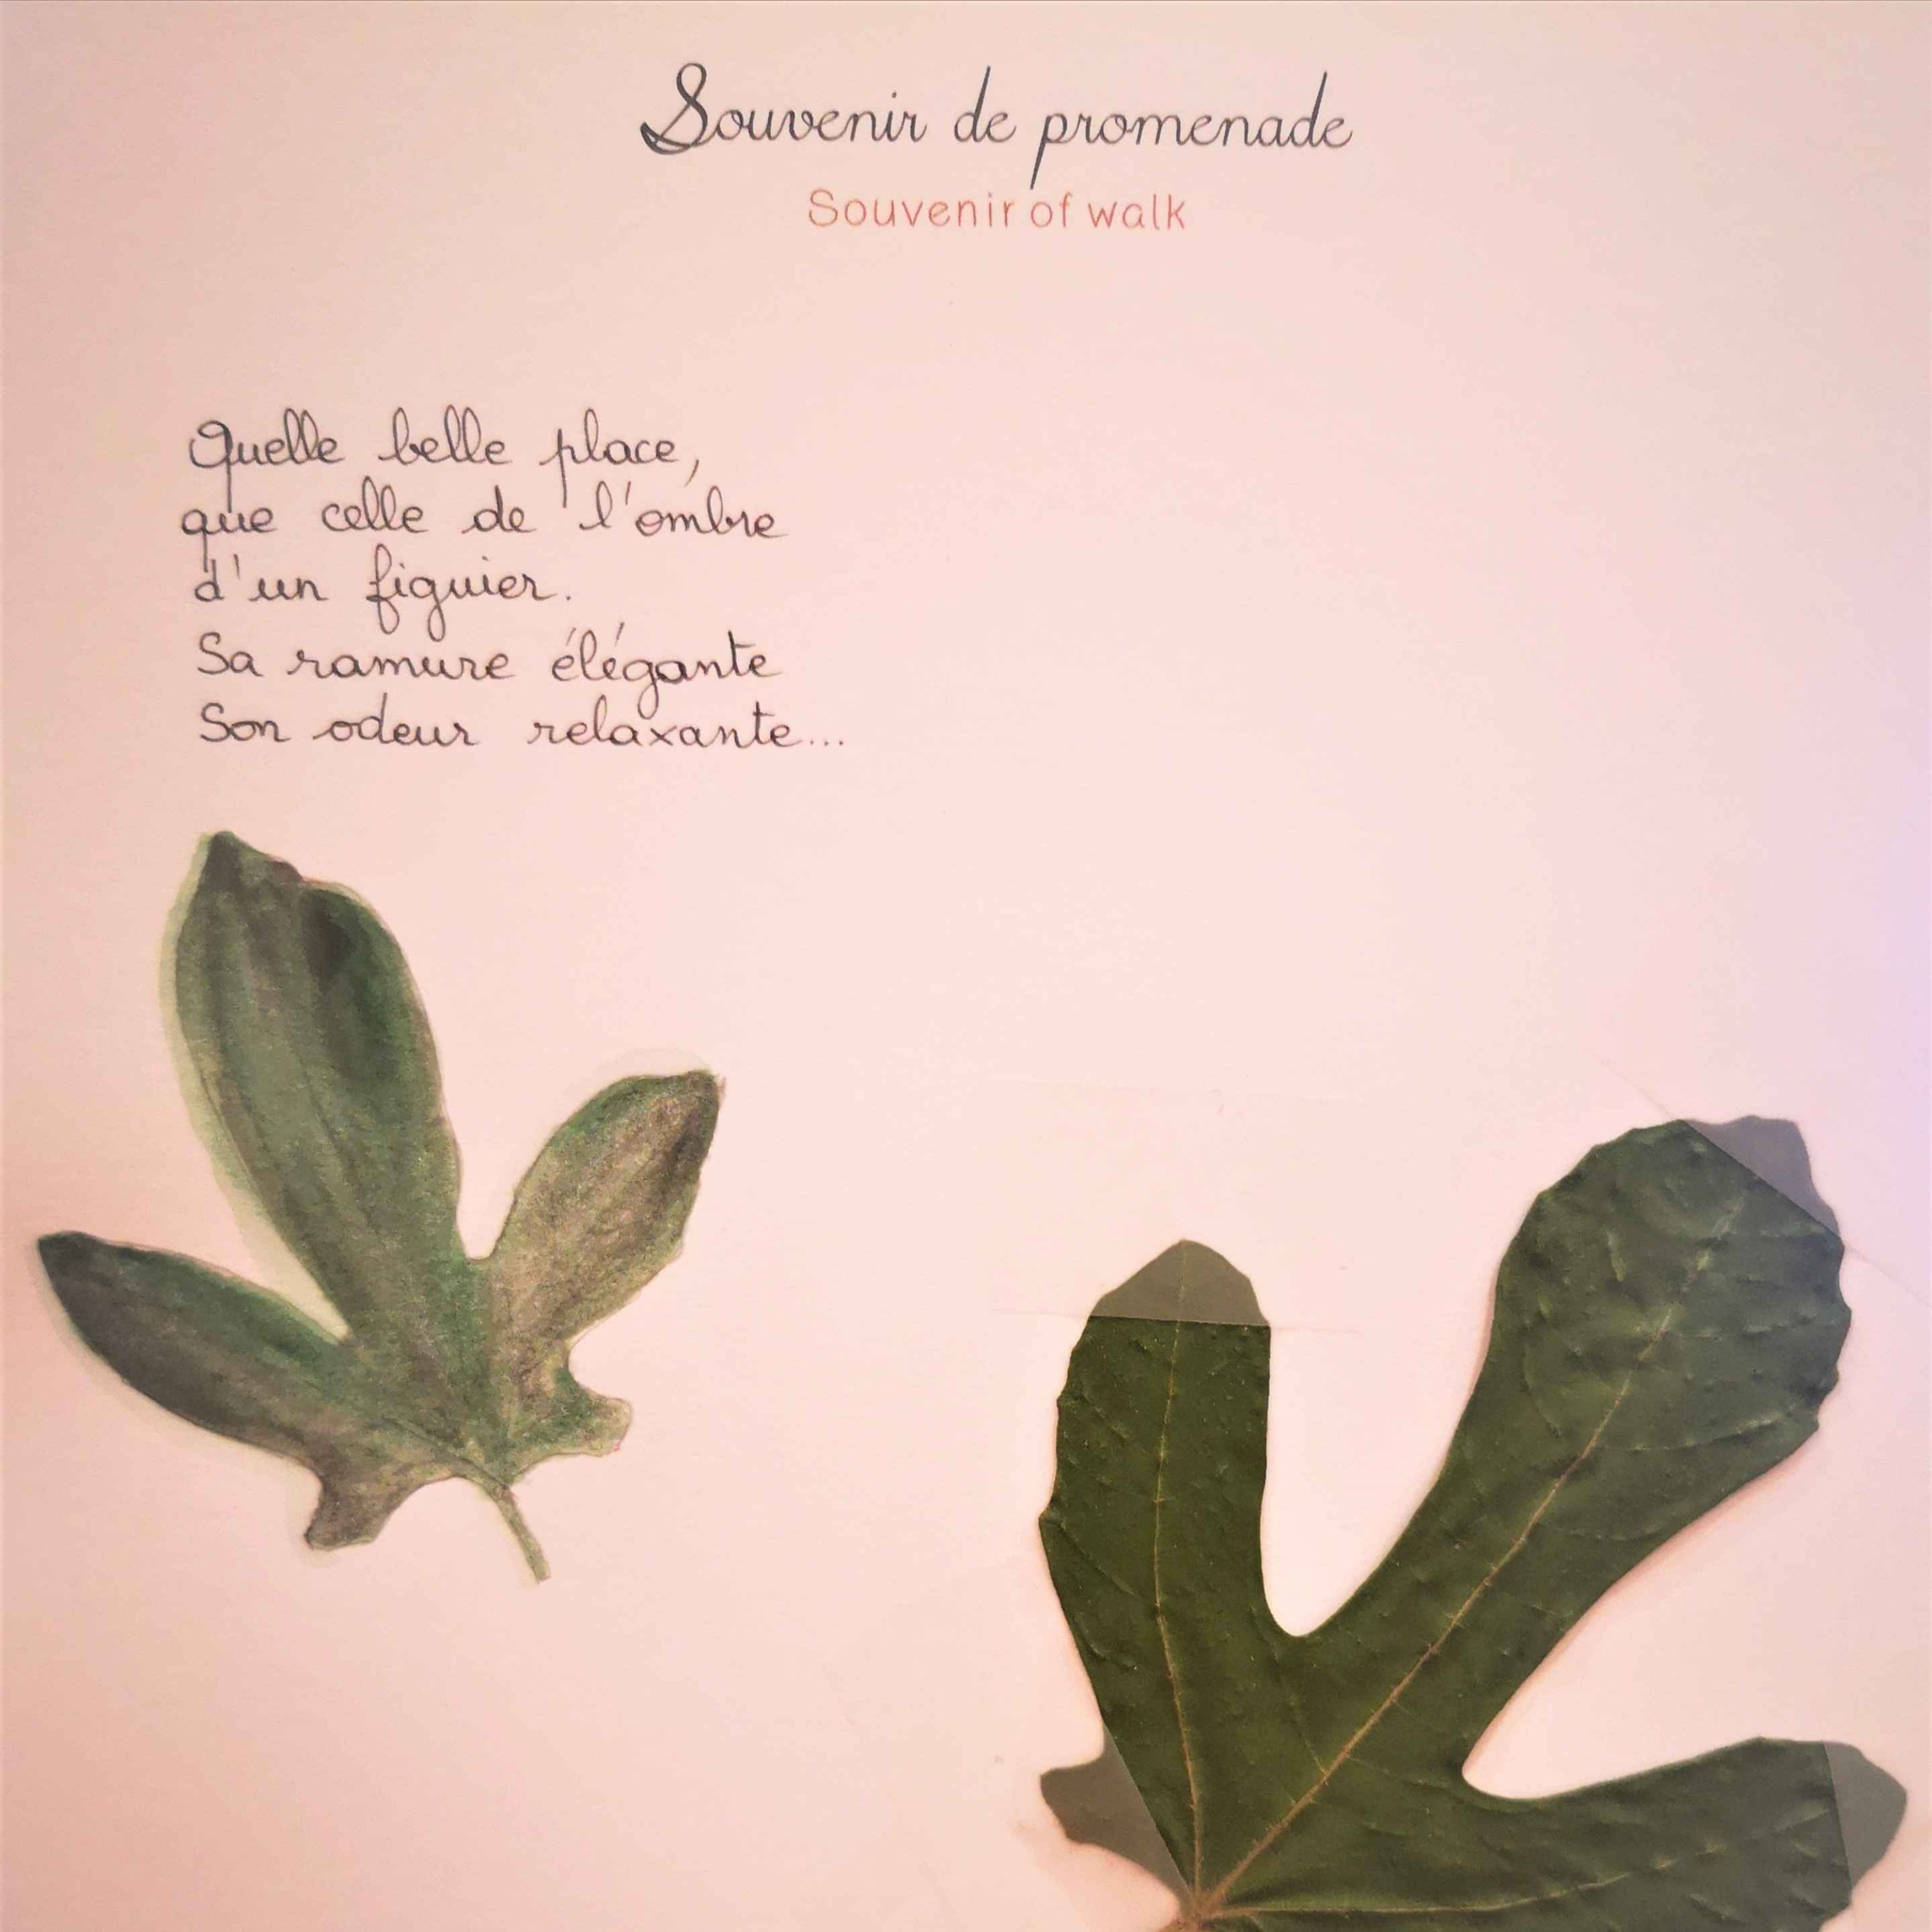 Souvenir de promenade
Souvenir of walk
Quelle belle place,
que celle de l'ombre
d'un figuier.
Sa ramure élégante
Son odeur relaxante...